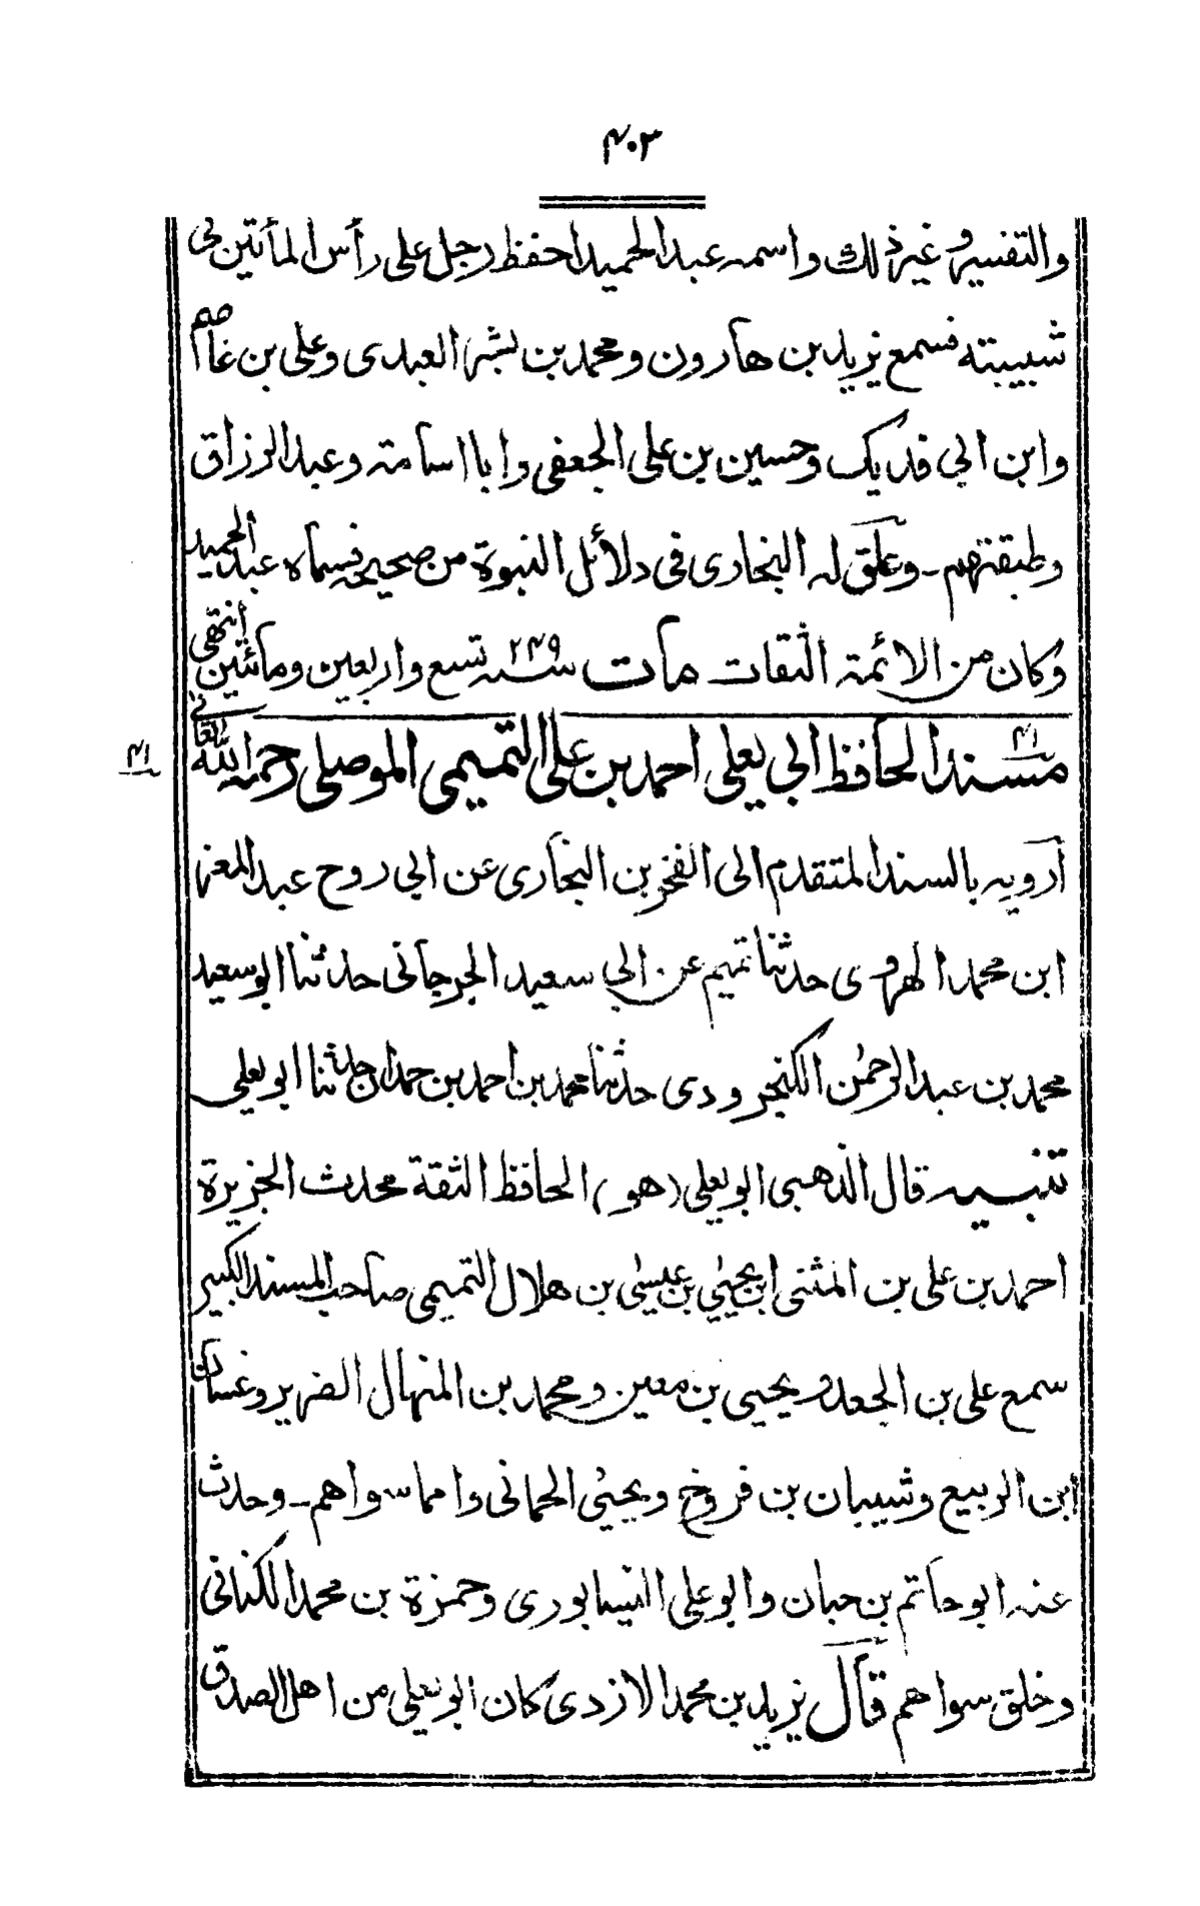 ۴۰۳
والتفسير وغير ذلك واسمه عبد الحميد احفظ رجل على رأس المأتين فى
شبيبته فسمع يزيد بن هارون ومحمد بن بشر العبدى وعلى بن عاصم
وابن ابي فديك وحسين بن على الجعفى وابا اسامة وعبد الرزاق
وطبقتهم ـ وعلق له البخارى فى دلائل النبوة من صحيحه فسماه عبد الحميد
وكان من الائمة الثقات مات سنة ۲۴۹ تسع واربعين ومأتين انتهى
۴۱ مسند الحافظ ابي يعلى احمد بن على التميمى الموصلى رحمه الله تعالى ۴۱
آرويه بالسند المتقدم الى الفخر بن البخارى عن ابي روح عبد المعز
ابن محمد الهروى حدثنا تميم عن ابي سعيد الجرجانى حدثنا ابو سعيد
محمد بن عبد الرحمٰن الكنجرودى حدثنا محمد بن احمد بن حمدان حدثنا ابو يعلى
تنبيه قال الذهبى ابو يعلى (هو) الحافظ الثقة محدث الجزيرة
احمد بن على بن المثنى ابن يحيىٰ بن عيسىٰ بن هلال التميمى صاحب المسند الكبير
سمع على بن الجعد ويحيى بن معين ومحمد بن المنهال الضرير وغسان
ابن الربيع وشيبان بن فروخ ويحيىٰ الحمانى وامما سواهم ـ وحدث
عنه ابو حاتم بن حبان وابو على النيسابورى وحمزة بن محمد الكنانى
وخلق سواهم قال يزيد بن محمد الازدى كان ابو يعلى من اهل الصدق